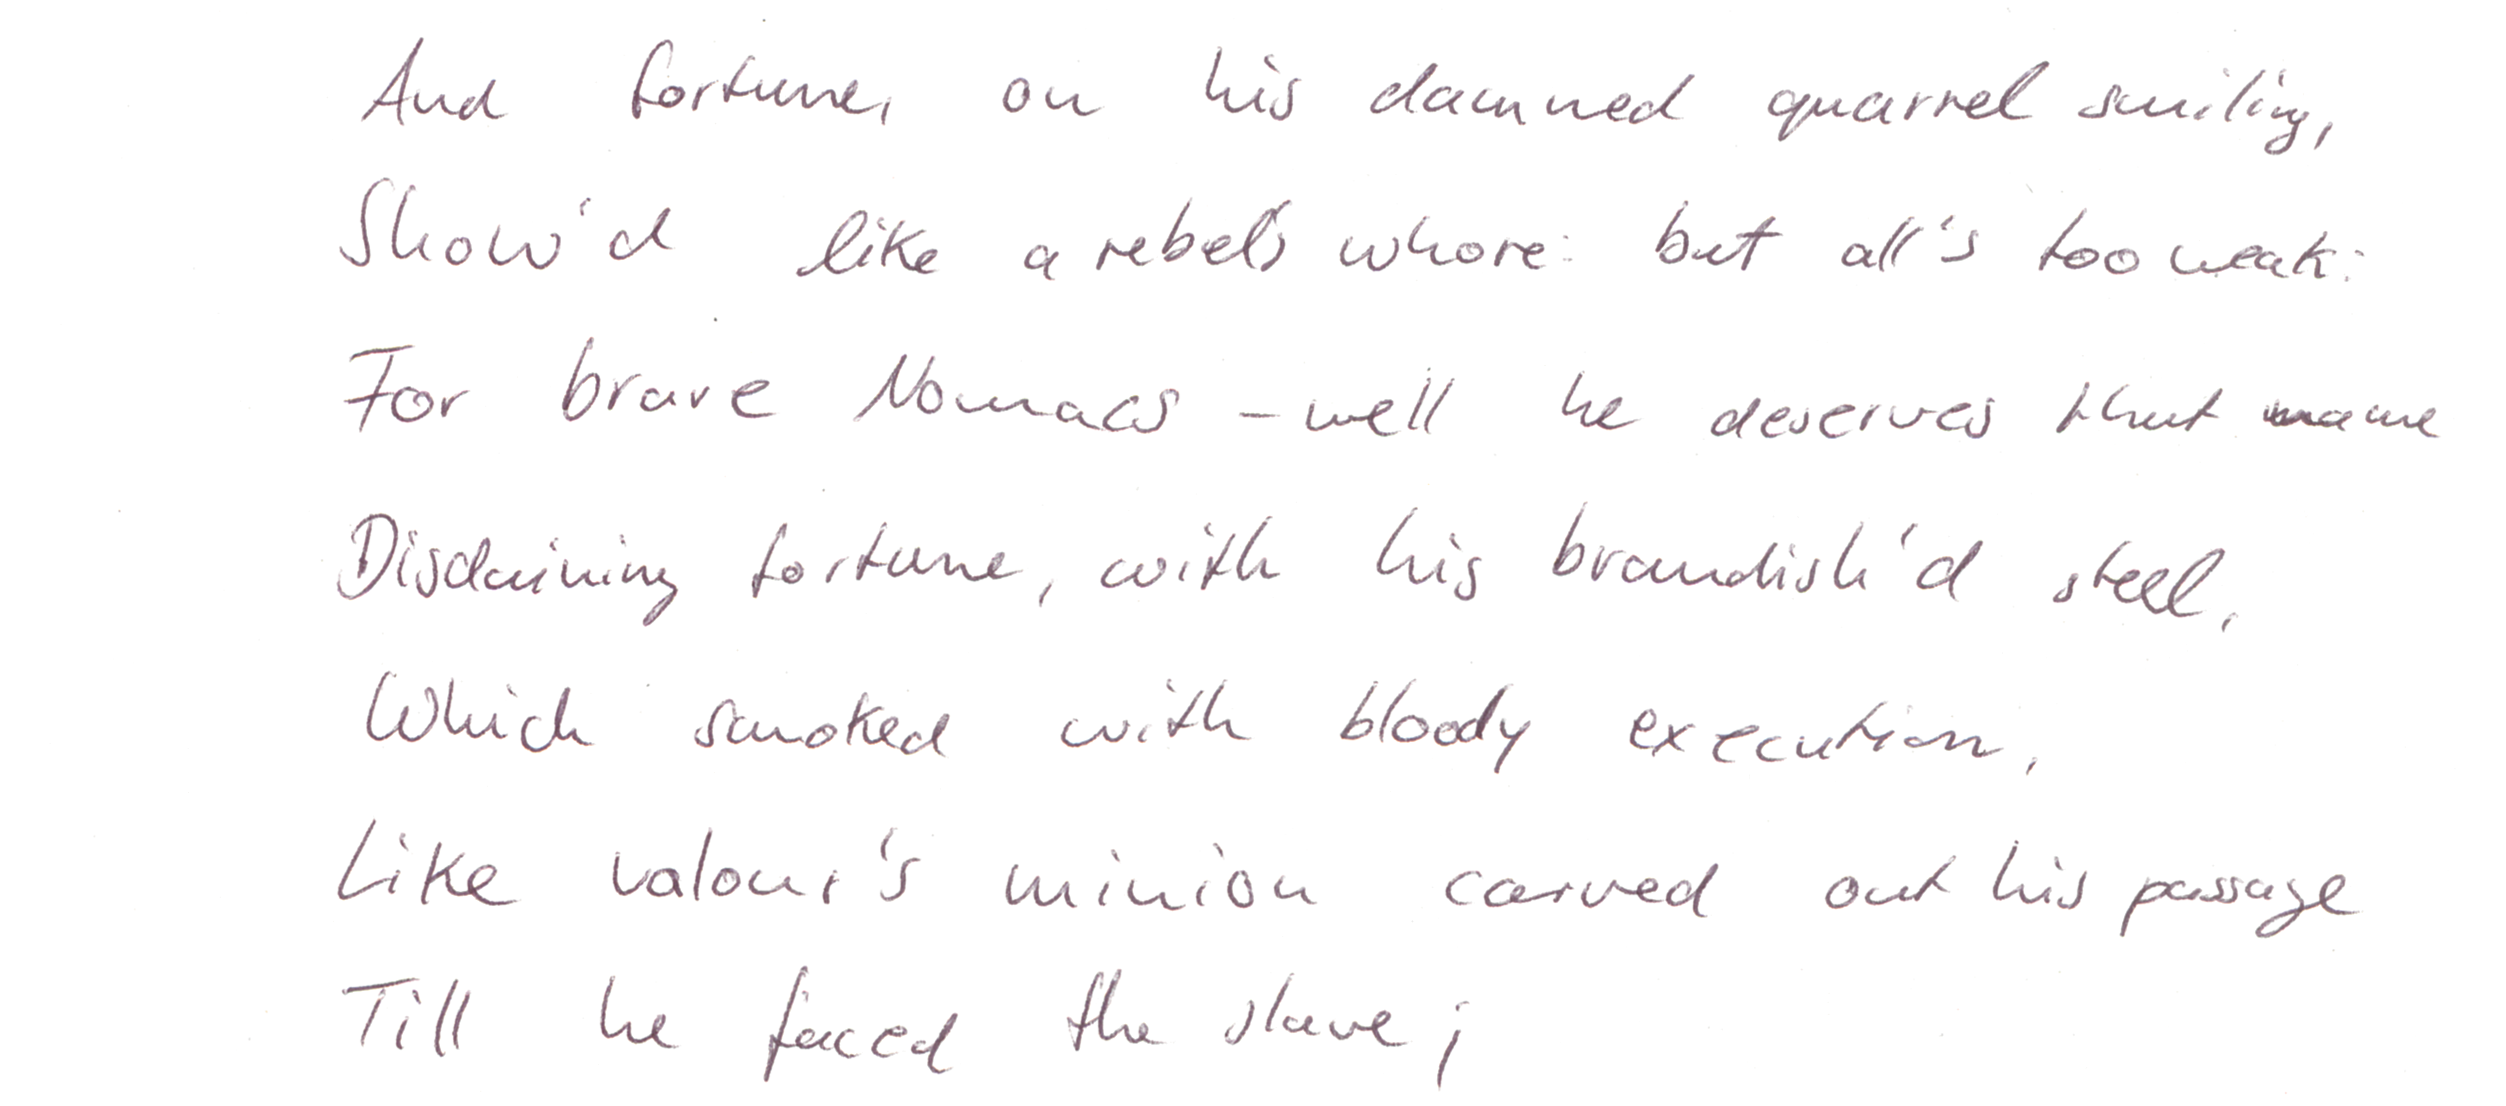 And fortune, on his damned quarrel smiling,
Show'd like a rebel's whore: but all's too weak:
For brave Nomacs - well he deserves that name
Disdaining fortune, with his brandish'd steel,
Which smoked with bloody execution,
Like valour's minion carved out his passage
Till he faced the slave;